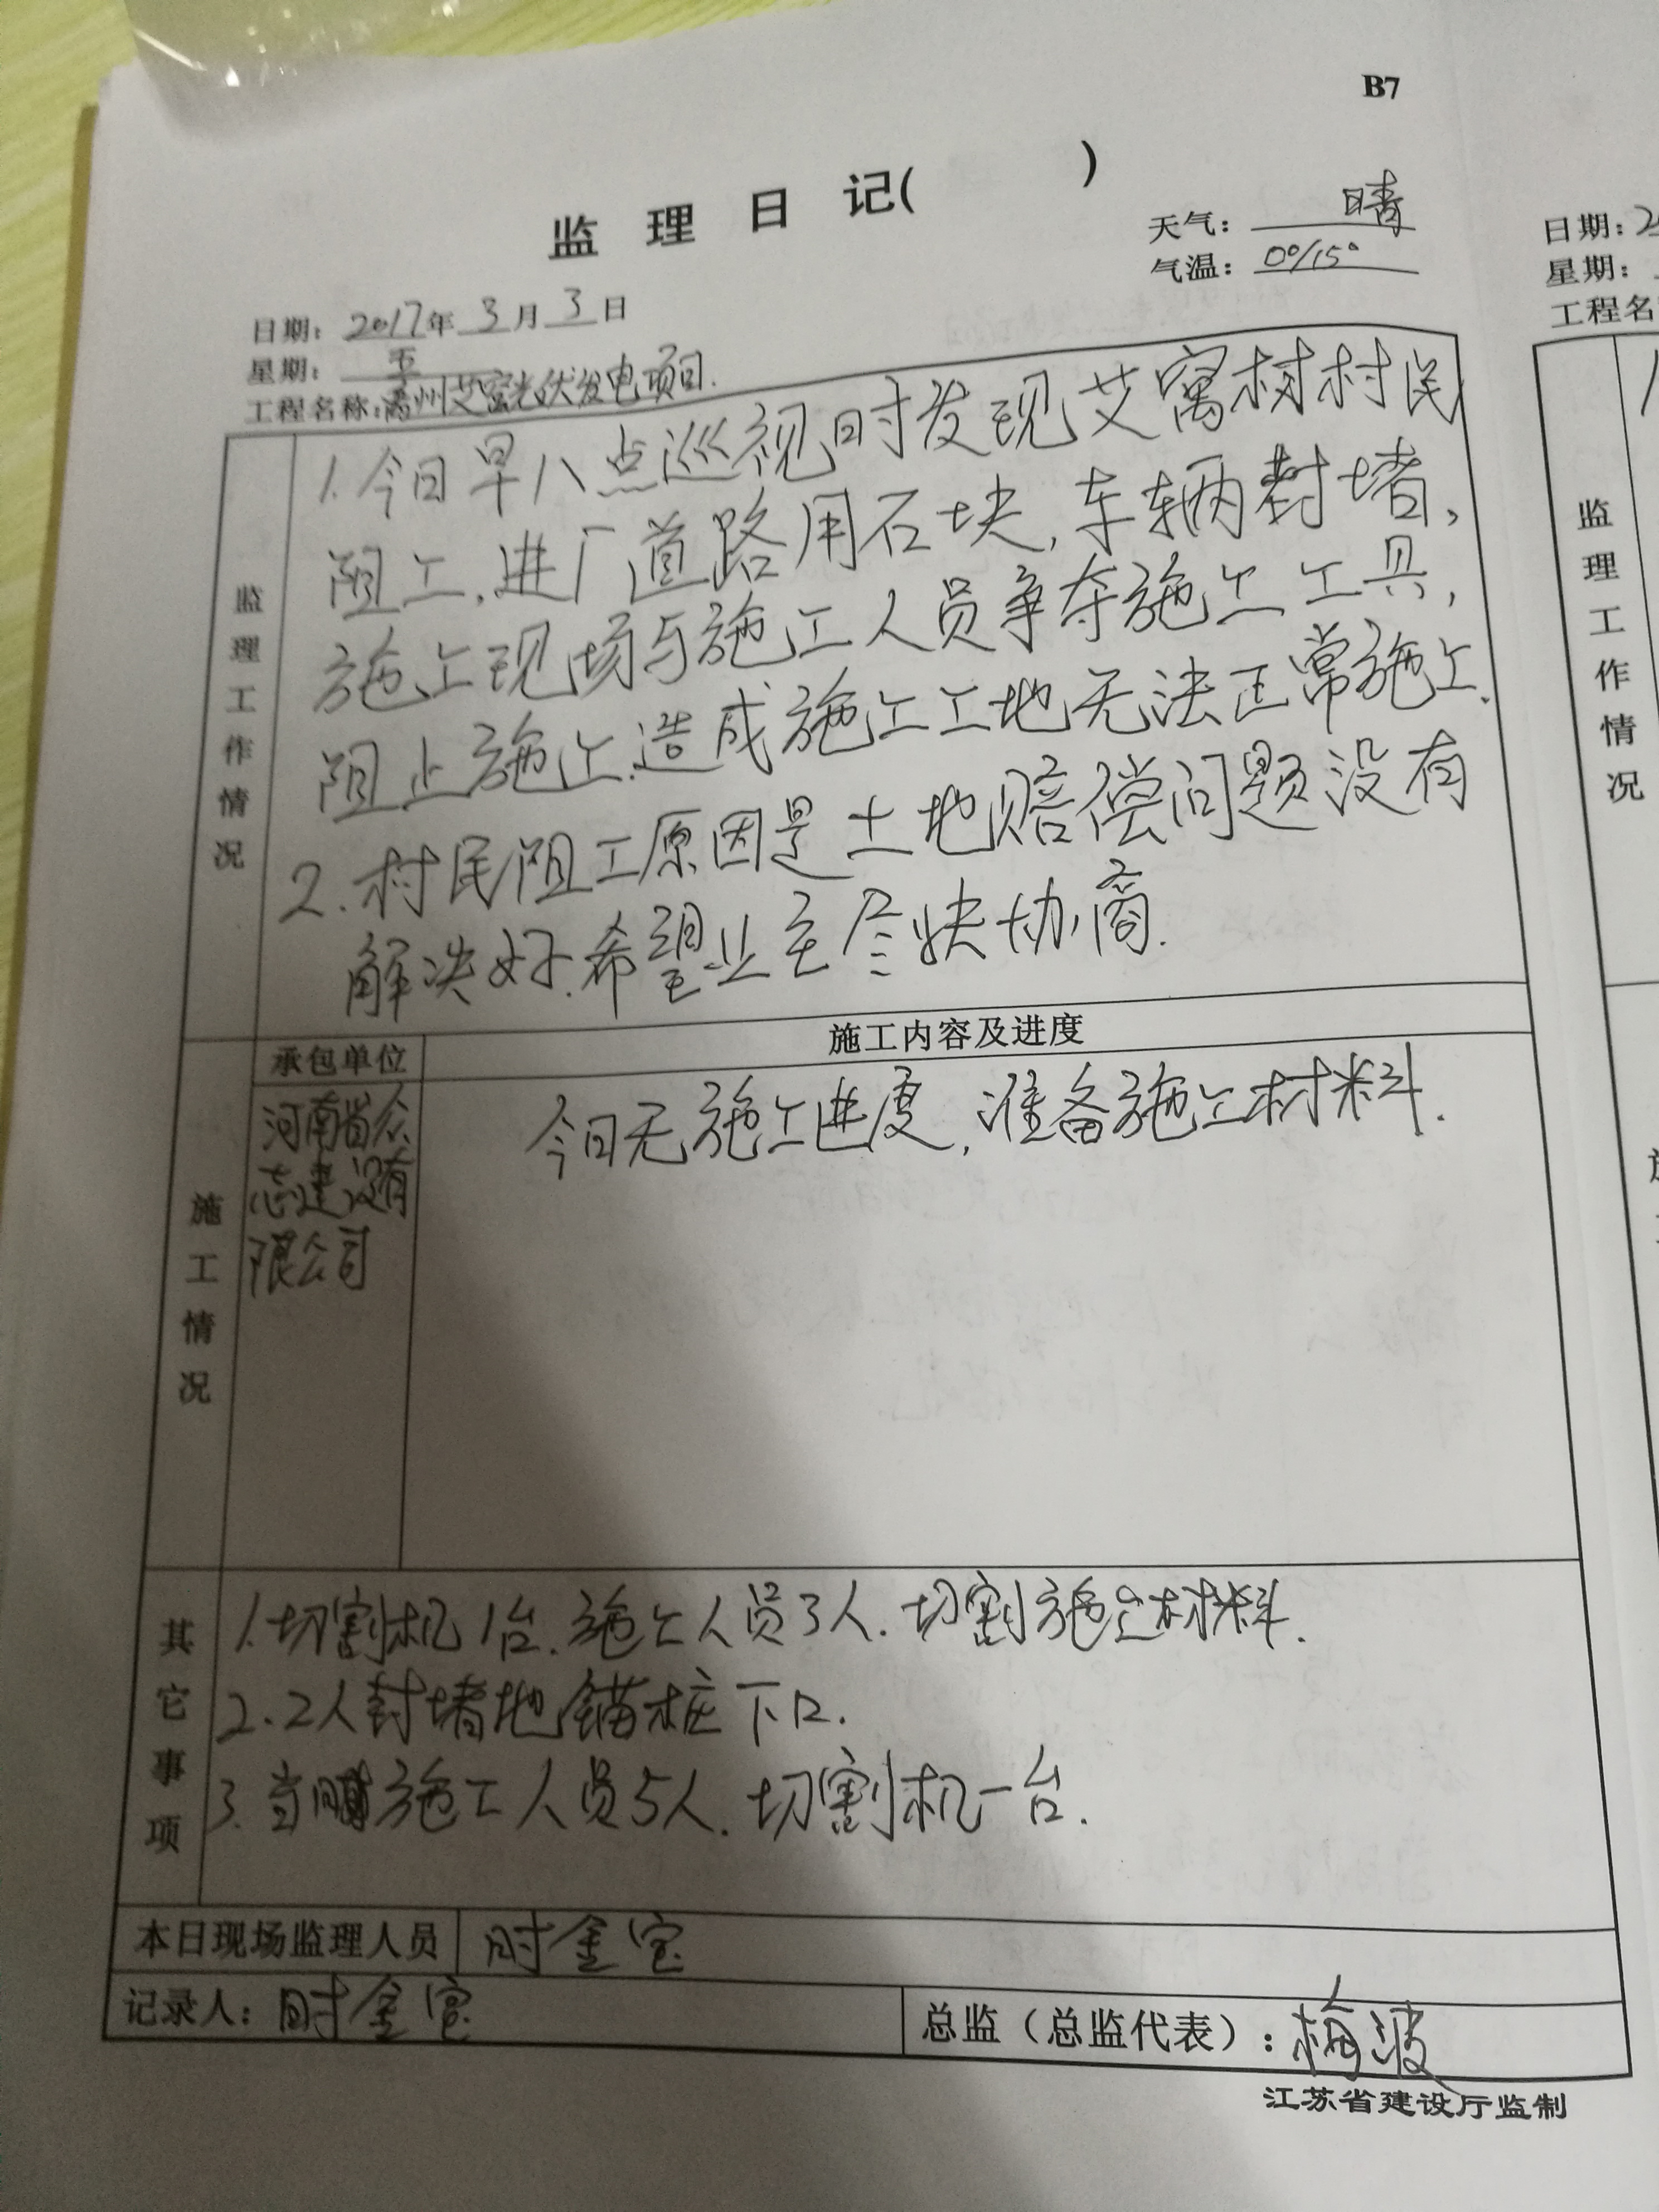 B7
监理日记( )
天气： 晴
气温： 0°/15°
日期： 2017年 3月 3日
星期： 五
工程名称：禹州艾窑光伏发电项目.
监理工作情况
1. 今日早八点巡视时发现艾窝村村民
阻工,进厂道路用石块,车辆封堵,
施工现场与施工人员争夺施工工具,
阻止施工.造成施工工地无法正常施工.
2. 村民阻工原因是土地赔偿问题没有
解决好.希望业主尽快协商.
施工情况
承包单位
施工内容及进度
河南省众
志建设有
限公司
今日无施工进度,准备施工材料.
其它事项
1.切割机1台.施工人员3人.切割施工材料.
2.2人封堵地锚桩下口.
3.当 施工人员5人.切割机一台.
本日现场监理人员 时金宝
记录人：时金宝
总监（总监代表）：梅波
江苏省建设厅监制
日期：2
星期：
工程名
监理工作情况
1
施